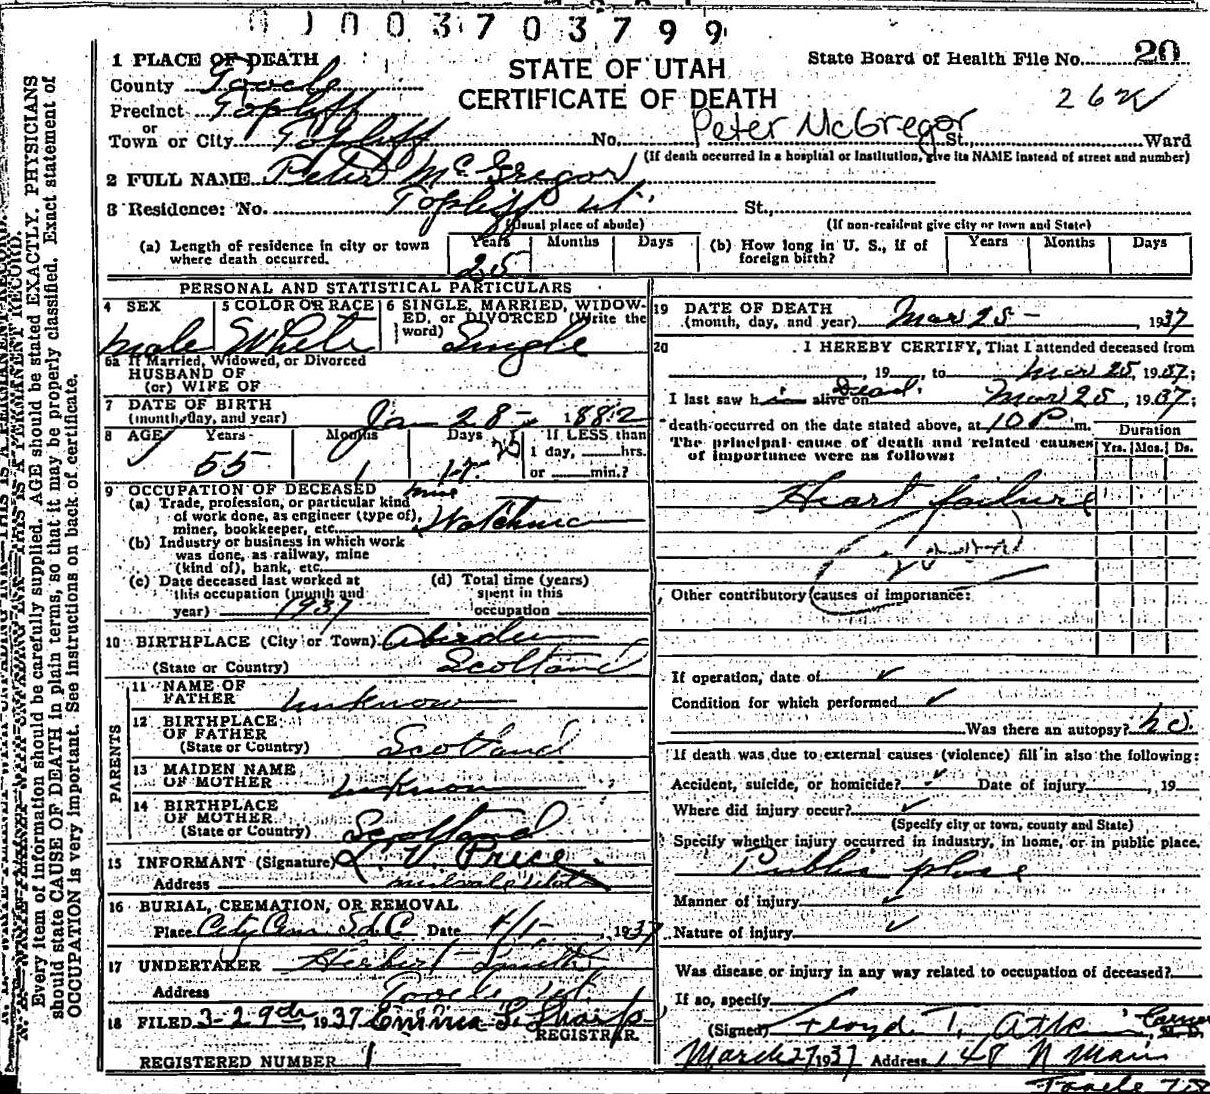 0 1 0 0 3 7 0 3 7 9 9
STATE OF UTAH
CERTIFICATE OF DEATH
State Board of Health File No. 20
1 PLACE OF DEATH
County Tooele
Precinct Topliff
or
Town or City Topliff No. Peter McGregor St., Ward
(If death occurred in a hospital or institution, give its NAME instead of street and number)
2 FULL NAME Peter McGregor
3 Residence: No. Topliff ut. St.,
(Usual place of abode) (If non-resident give city or town and State)
(a) Length of residence in city or town where death occurred. Years 25 Months Days
(b) How long in U. S., if of foreign birth? Years Months Days
PERSONAL AND STATISTICAL PARTICULARS
4 SEX male
5 COLOR OR RACE White
6 SINGLE, MARRIED, WIDOWED, or DIVORCED (Write the word) Single
6a If Married, Widowed, or Divorced
HUSBAND OF
(or) WIFE OF
7 DATE OF BIRTH
(month, day, and year) Jan 28 - 1882
8 AGE Years 55 Months 1 Days 25 If LESS than
1 day, hrs.
or min.?
9 OCCUPATION OF DECEASED
(a) Trade, profession, or particular kind
of work done, as engineer (type of),
miner, bookkeeper, etc. mine Watchman
(b) Industry or business in which work
was done, as railway, mine
(kind of), bank, etc.
(c) Date deceased last worked at
this occupation (month and
year) 1937
(d) Total time (years)
spent in this
occupation
10 BIRTHPLACE (City or Town) Abirdeen
(State or Country) Scotland
PARENTS
11 NAME OF
FATHER Unknown
12 BIRTHPLACE
OF FATHER
(State or Country) Scotland
13 MAIDEN NAME
OF MOTHER Unknown
14 BIRTHPLACE
OF MOTHER
(State or Country) Scotland
15 INFORMANT (Signature) L. V. Price
Address
16 BURIAL, CREMATION, OR REMOVAL
Place City Cem S.L.C Date 4/1- 1937
17 UNDERTAKER Herbert Smith
Address Tooele ut.
18 FILED 3-29th, 1937 Emma S. Sharp
REGISTRAR.
REGISTERED NUMBER 1
19 DATE OF DEATH
(month, day, and year) Mar 25 - , 1937
20 I HEREBY CERTIFY, That I attended deceased from
, 19 , to Mar 25, 1937;
I last saw him alive on Dead. Mar 25, 1937;
death occurred on the date stated above, at 10 P m.
The principal cause of death and related causes
of importance were as follows:
Duration
Yrs. Mos. Ds.
Heart failure
Other contributory causes of importance:
If operation, date of ✓
Condition for which performed ✓
Was there an autopsy? no.
If death was due to external causes (violence) fill in also the following:
Accident, suicide, or homicide? ✓ Date of injury , 19
Where did injury occur? ✓
(Specify city or town, county and State)
Specify whether injury occurred in industry, in home, or in public place.
Public place
Manner of injury ✓
Nature of injury ✓
Was disease or injury in any way related to occupation of deceased?
If so, specify
(Signed) Floyd T. M. D.
March 27 1937 Address 148 N Main
Tooele
Every item of information should be carefully supplied. AGE should be stated EXACTLY. PHYSICIANS
should state CAUSE OF DEATH in plain terms, so that it may be properly classified. Exact statement of
OCCUPATION is very important. See instructions on back of certificate.